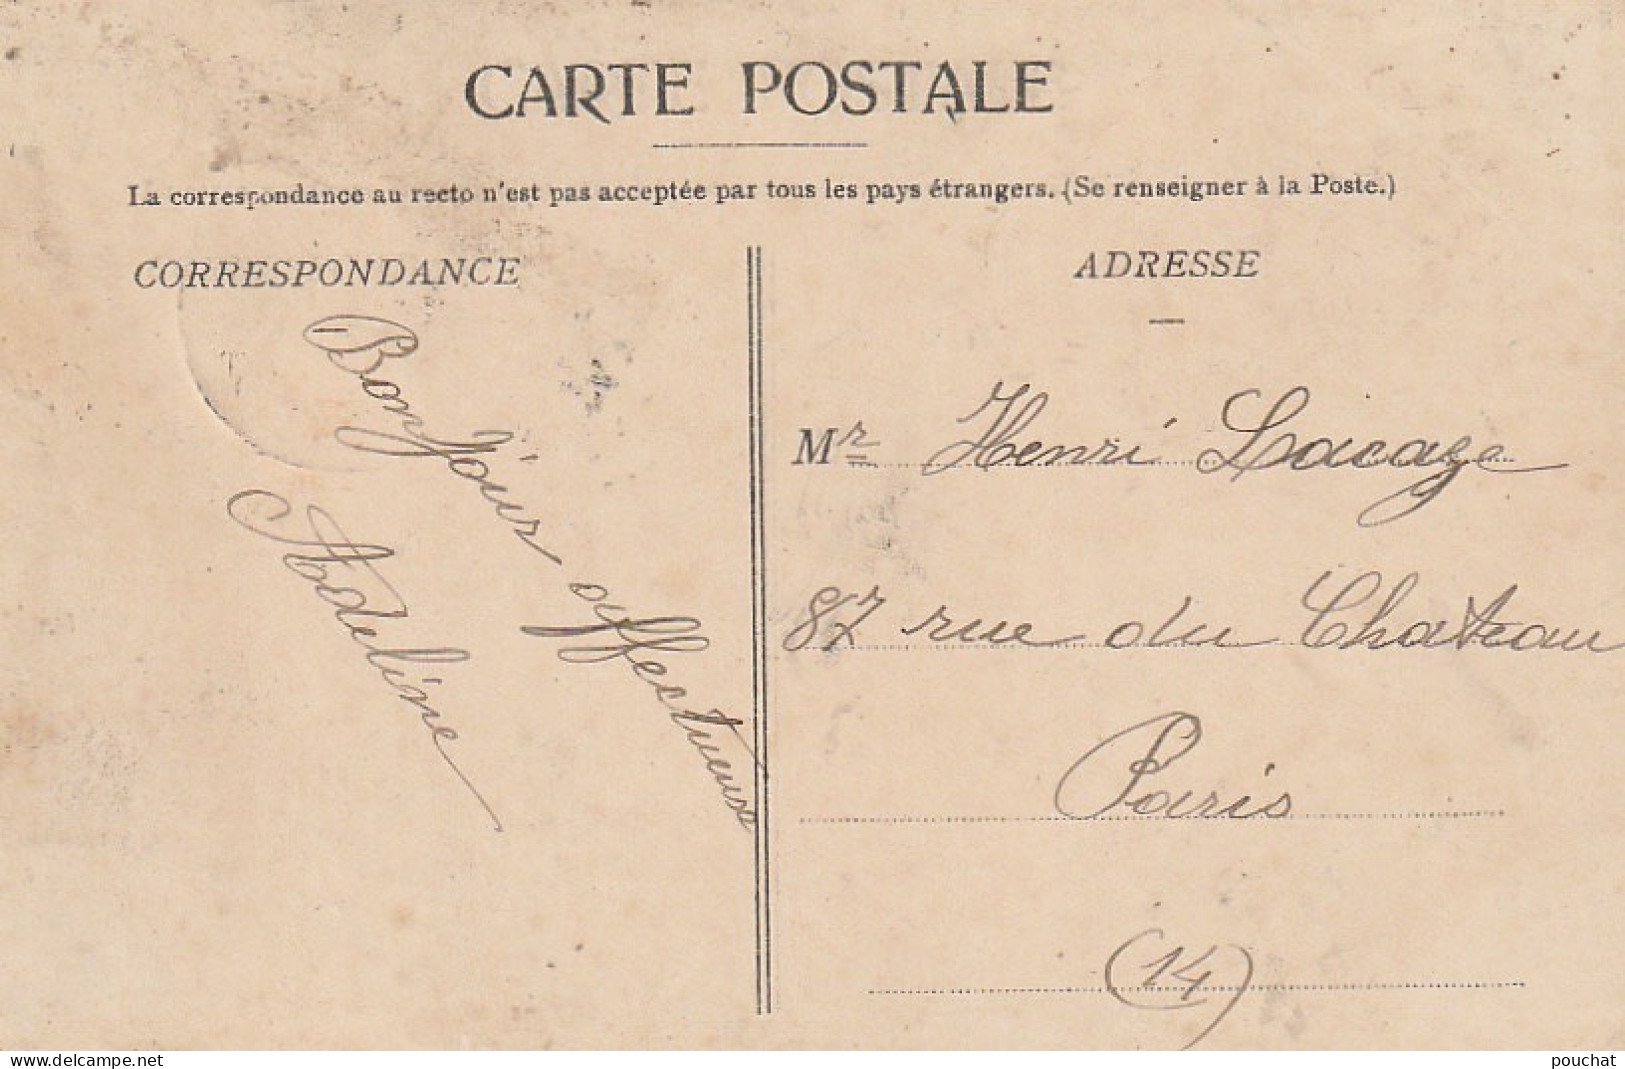 CARTE POSTALE
La correspondance au recto n'est pas acceptée par tous les pays étrangers. (Se renseigner à la Poste.)
CORRESPONDANCE
Bonjour affectueux
Adeline
ADRESSE
Mr Henri Lacaze
87 rue du Chateau
Paris
(14)
www.delcampe.net
pouchat